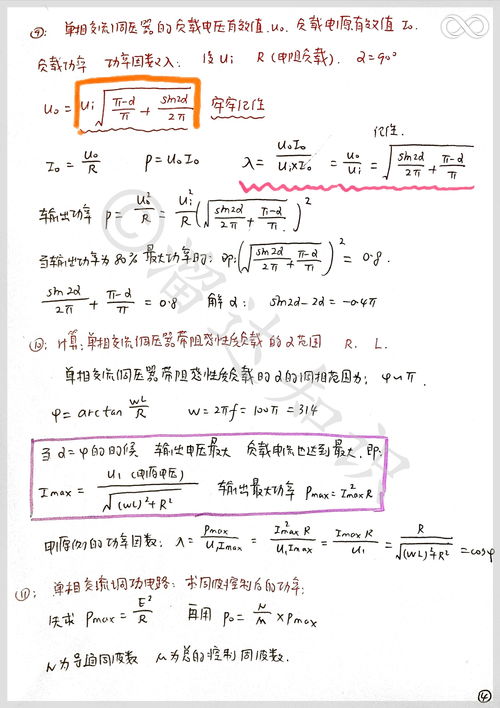 ⑨ 单相交流调压器的负载电压有效值.U₀. 负载电流有效值 I₀
负载功率 功率因数入: 设Ui R(电阻负载). α=90°
U₀ = Ui √(π-α/π + sin2α/2π) 牢牢记住
I₀ = U₀/R P=U₀I₀ λ= U₀I₀/Ui×I₀ = U₀/Ui = √(sin2α/2π + π-α/π) 记住.
输出功率 P= U₀²/R = Ui²/R (√(sin2α/2π + π-α/π))²
当输出功率为80% 最大功率时, 即: (√(sin2α/2π + π-α/π))² = 0.8.
sin2α/2π + π-α/π = 0.8 解α: sin2α-2α = -0.4π
⑩: 计算:单相交流调压器带阻感性负载的α范围 R. L.
单相交流调压器带阻感性负载时α的调相范围为: φ~π.
φ= arctan WL/R W=2πf=100π=314
当α=φ的时候 输出电压最大 负载电流也达到最大. 即:
Imax = U₁(电源电压)/√((WL)²+R²) 输出最大功率 Pmax=I²max R
电源侧的功率因数: λ= Pmax/U₁Imax = I²max R/U₁Imax = Imax R/U₁ = R/√((WL)²+R²) =cosφ
⑪: 单相交流调功电路: 求周波控制后的功率:
先求 Pmax= E²/R 再用 P₀= N/M ×Pmax
N为导通周波数 M为总的控制周波数.
©溜达知识
④